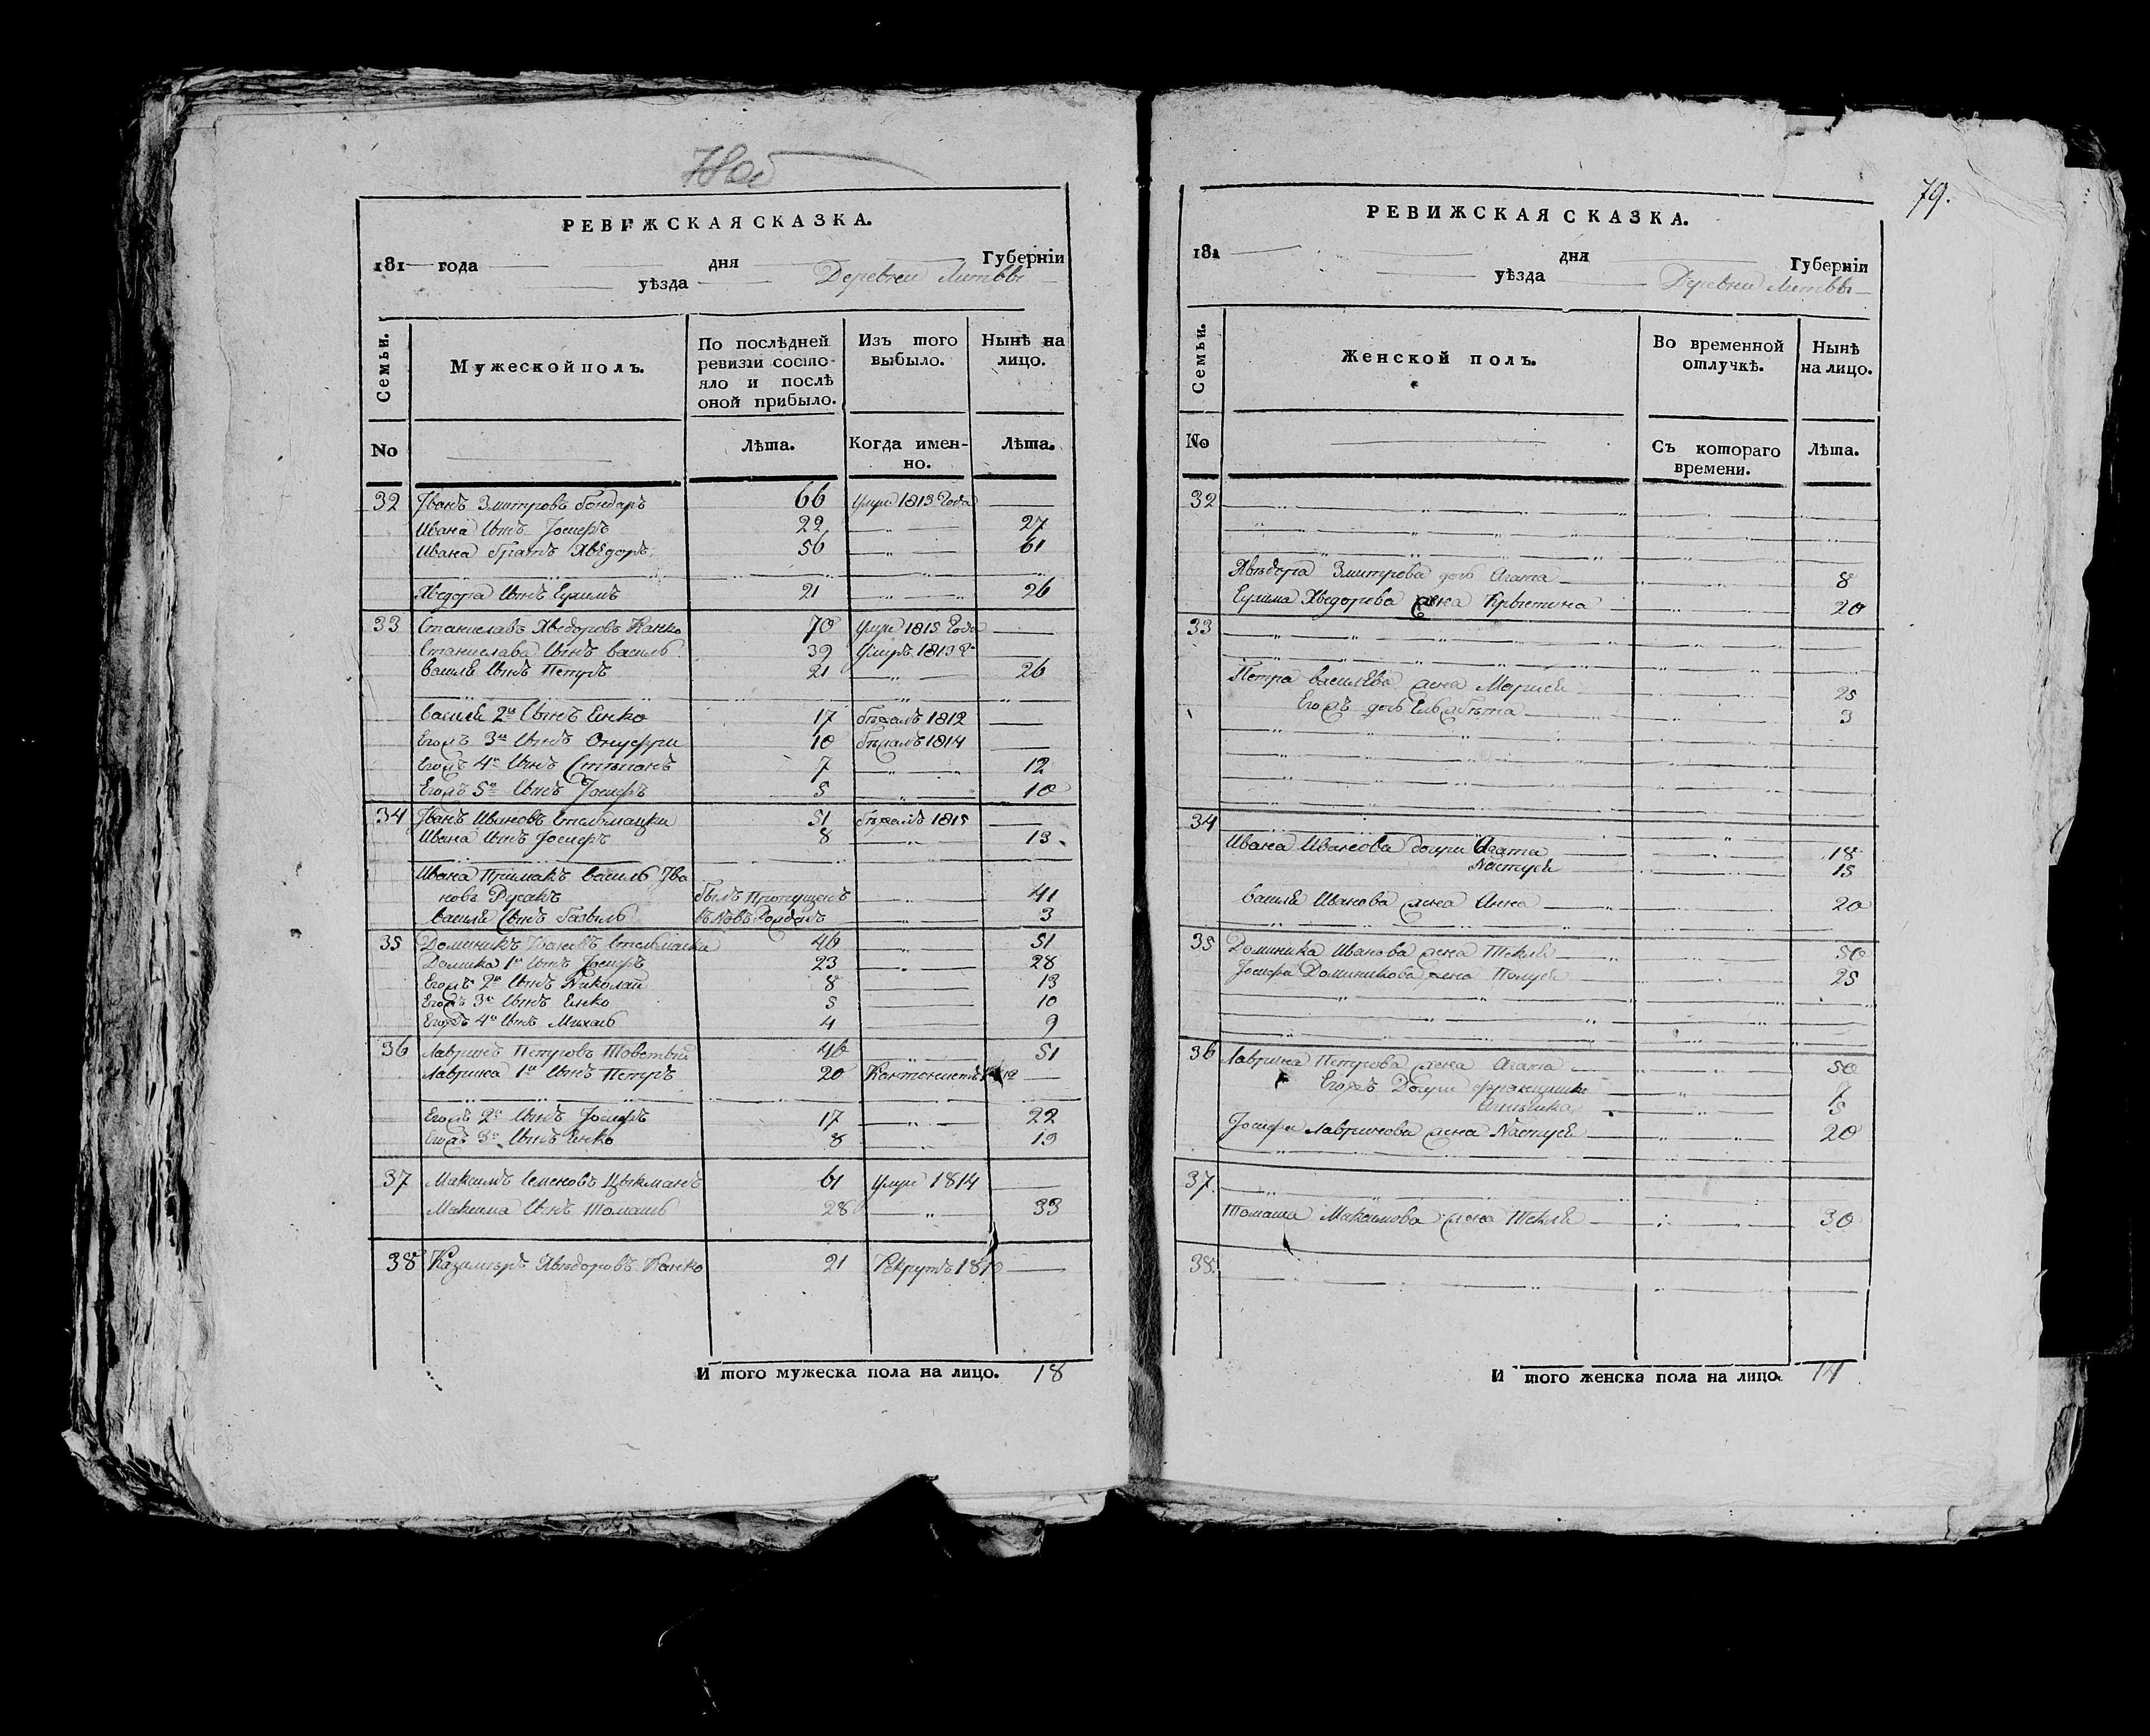 РЕВИЖСКАЯ СКАЗКА.
181 года дня Губернїи
уѣзда Деревни Литвы
Семьи.
Мужеской полъ.
По послѣдней ревизїи состояло и послѣ оной прибыло.
Изъ того выбыло.
Нынѣ на лицо.
No
Лѣта.
Когда именно.
Лѣта.
32 Іванъ Змитровъ бондаръ 66 умре 1813 Года
Ивана Сынъ Іосифъ 22 27
Ивана братъ Хведоръ 56 61
Хведора Сынъ Еухимъ 21 26
33 Станиславъ Хведоровъ Канко 70 умре 1815 Года
Станислава Сынъ василь 39 умръ 1813
василя Сынъ Петръ 21 26
василя 2й Сынъ Енко 17 бѣжалъ 1812
Егожъ 3й Сынъ Онуфри 10 бѣжалъ 1814
Егожъ 4й Сынъ Стѣпанъ 7 12
Егожъ 5й Сынъ Іосифъ 5 10
34 Іванъ Ивановъ Стельмашки 51 бѣжалъ 1815
Ивана Сынъ Іосифъ 8 13
Ивана Примакъ василь Іва
новъ Русакъ былъ Пропущенъ 41
василя Сынъ Гаврило 3
35 Доминикъ Івановъ Стельмашки 46 51
Домика 1й Сынъ Іосифъ 23 28
Егожъ 2й Сынъ Николай 8 13
Егожъ 3й Сынъ Енко 5 10
Егожъ 4й Сынъ Михаль 4 9
36 Лавринъ Петровъ 46 51
Лаврина 1й Сынъ Петръ 20
Егожъ 2й Сынъ Іосифъ 17 22
Егожъ 3й Сынъ Енко 8 13
37 Максимъ Семеновъ Цыкманъ 61 умре 1814
Максима Сынъ Томашъ 28 33
38 Казимѣръ Хвѣдоровъ Канко 21 Рекрутъ 1810
И того мужеска пола на лицо. 18
79.
РЕВИЖСКАЯ СКАЗКА.
181 дня Губернїи
уѣзда Деревни Литвы
Семьи.
Женской полъ.
Во временной отлучкѣ.
Нынѣ на лицо.
No
Съ котораго времени.
Лѣта.
32
Хвѣдора Змитрова дочь Агата 8
Еухима Хведорова жена Крыстина 20
33
Петра василева жена Марися 25
Егожъ дочь Ельжбѣта 3
34
Ивана Иванова дочри Агата 18
Настуся 15
василя Иванова жена Анна 20
35 Доминика Иванова жена Текля 50
Іосифа Доминикова жена Полуся 25
36 Лаврина Петрова жена Агата 50
Егожъ Дочри Францишка 7
Агнѣшка 5
Іосифа Лавринова жена Настуся 20
37
Томаша Максимова жена Текля 30
38.
И того женска пола на лицо. 14